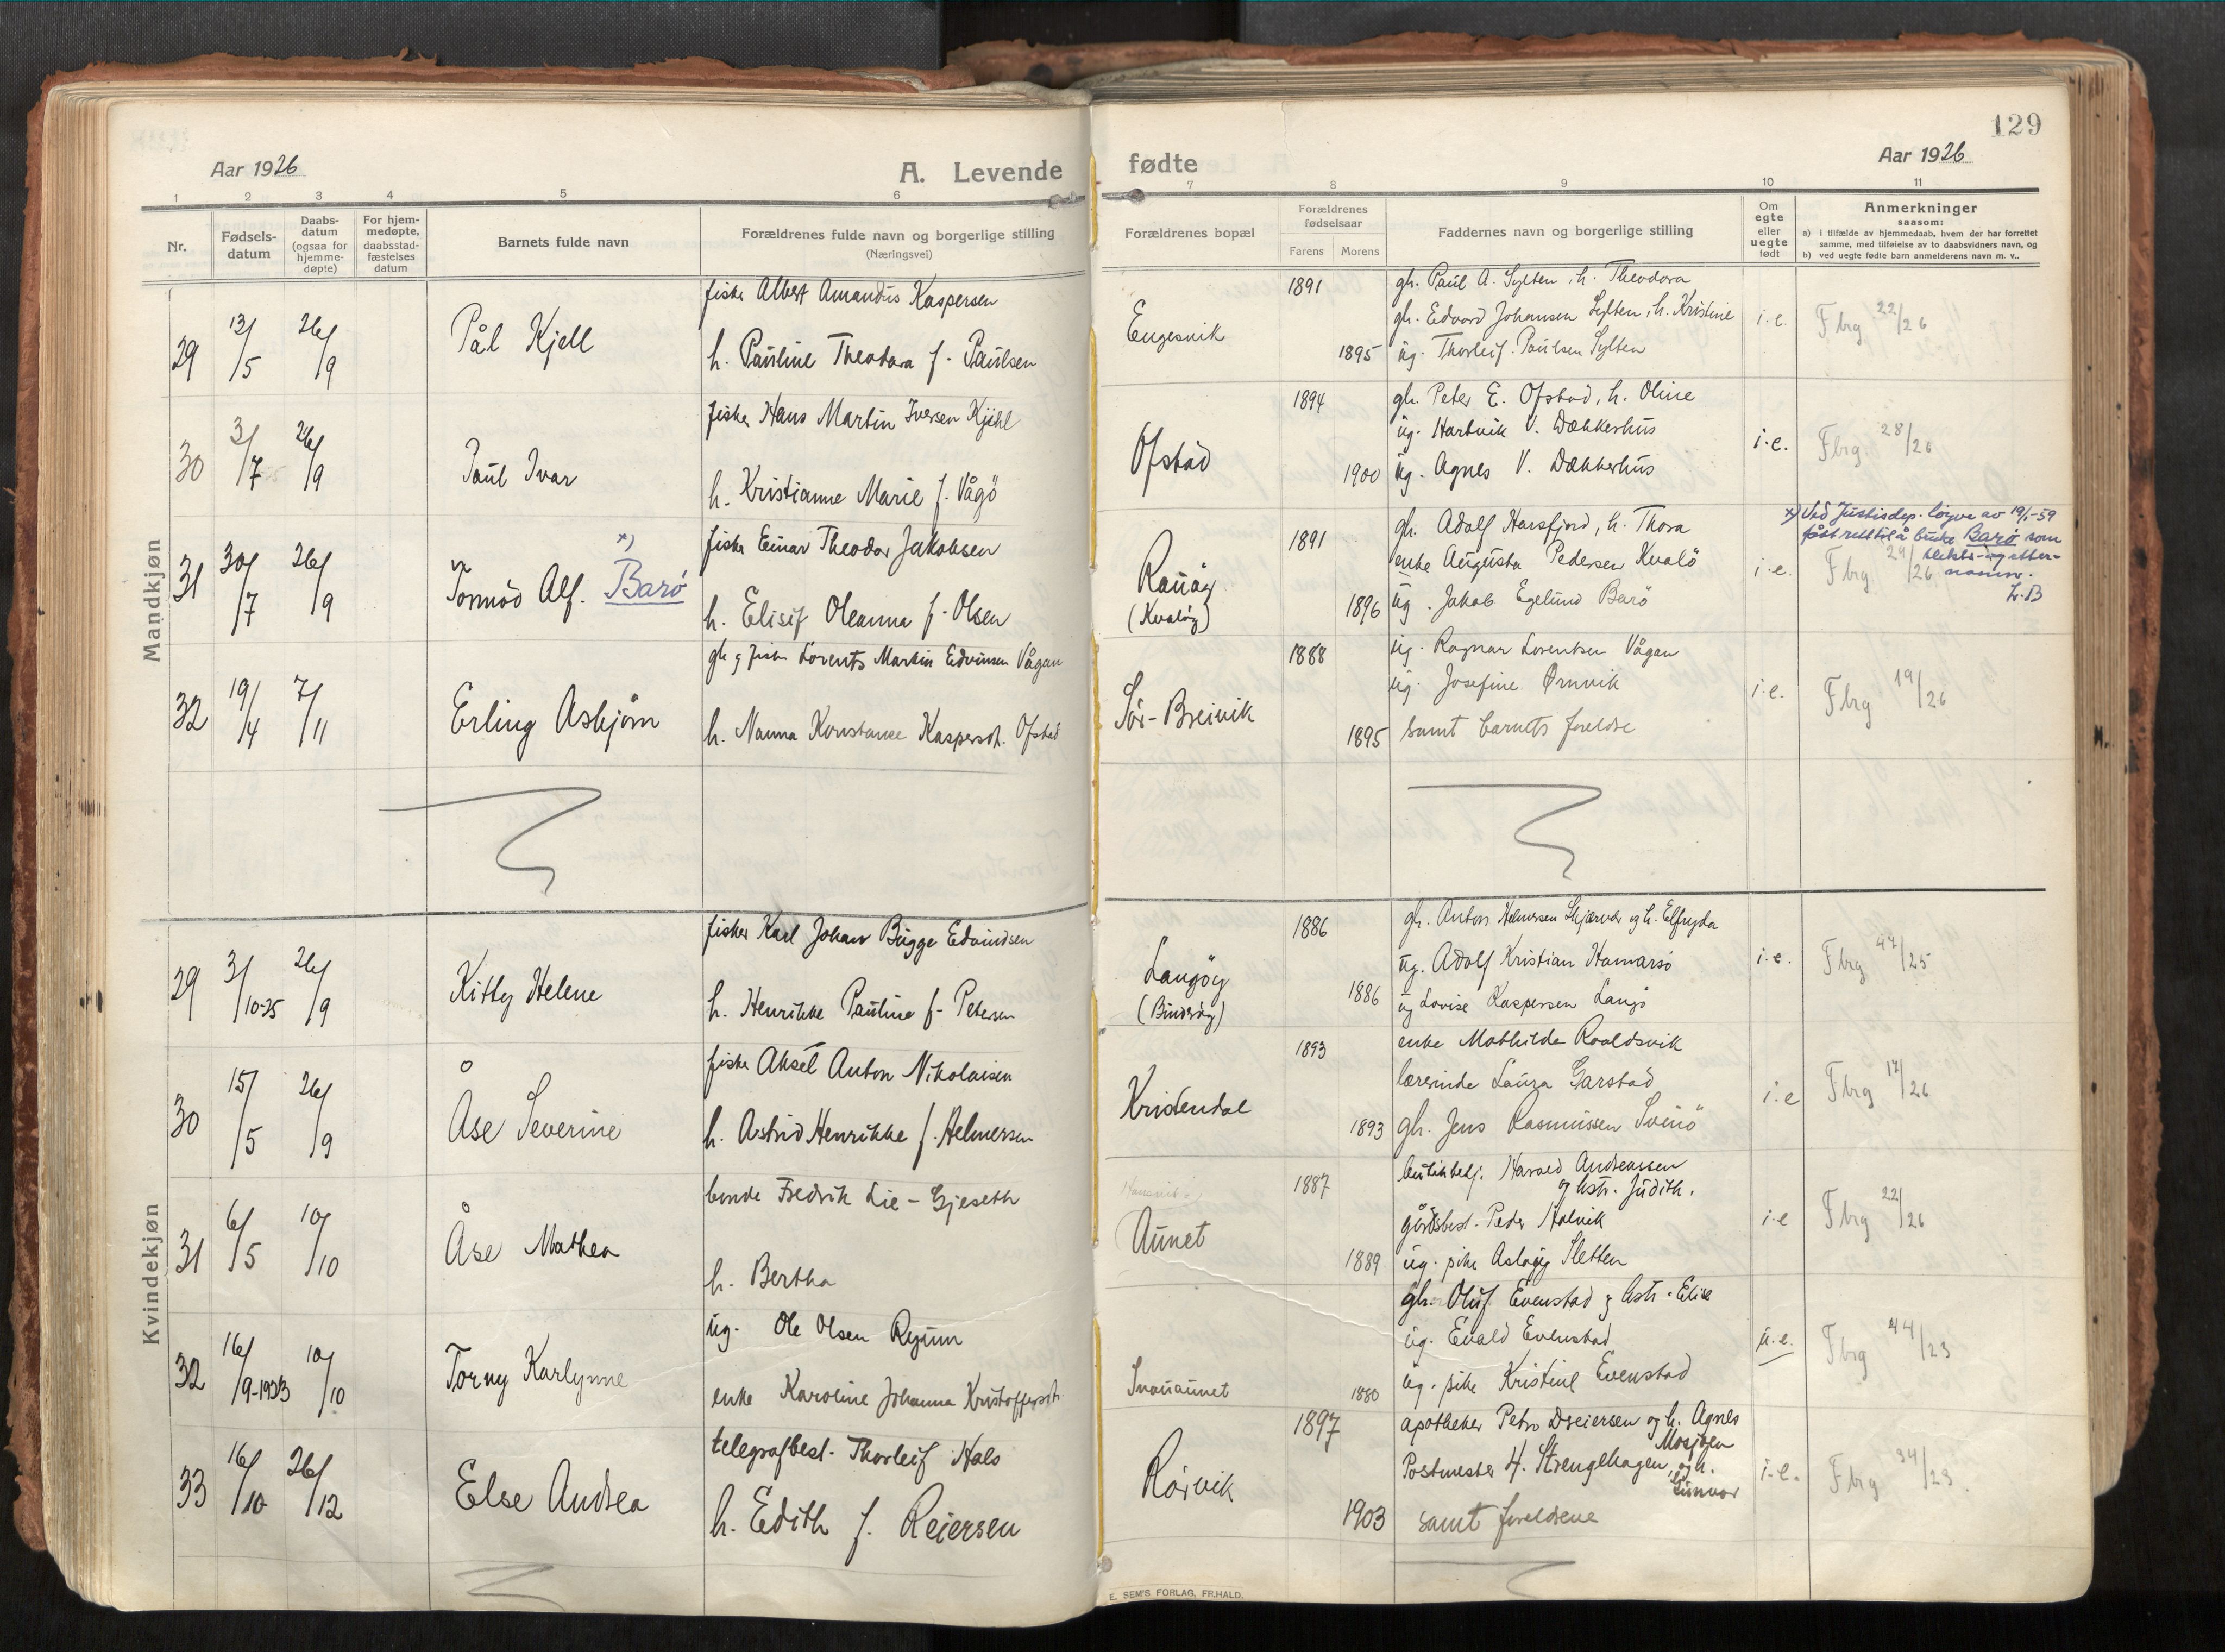 129
Aar 1926
A. Levende fødte
Aar 1926
1 2 3 4 5 6 7 8 9 10 11
Nr.
Fødsels-
datum
Daabs-
datum
(ogsaa for
hjemme-
døpte)
For hjem-
medøpte,
daabsstad-
fæstelses
datum
Barnets fulde navn
Forældrenes fulde navn og borgerlige stilling
(Næringsvei)
Forældrenes bopæl
Forældrenes
fødselsaar
Farens Morens
Faddernes navn og borgerlige stilling
Om
egte
eller
uegte
født
Anmerkninger
saasom:
a) i tilfælde av hjemmedaab, hvem der har forrettet
samme, med tilføielse av to daabsvidners navn, og
b) ved uegte fødte barn anmelderens navn m. v..
Mandkjøn
29 13/5 26/9 Pål Kjell
fisker Albert Amandus Kaspersen
h. Pauline Theodora f. Paulsen
Eugesvik
1891
1895
gh. Paul A. Sylten, h. Theodora
gh. Edvard Johansen Sylten, h. Kristine
ug. Thorleif Paulsen Sylten
i.e.
Fbrg 22/26
30 3/7 26/9 Paul Ivar
fisker Hans Martin Iversen Kjihl
h. Kristianne Marie f. Vågö
Ofstad
1894
1900
gh. Peter E. Ofstad, h. Oline
ug. Hartvik V. Dækkerhus
ug. Agnes V. Dækkerhus
i.e.
Fbrg 28/26
31 30/7 26/9 Tormod Alf. Barö x)
fisker Einar Theodor Jakobsen
h. Elisif Oleanna f. Olsen
Rauöy
(Kvalöy)
1891
1896
gh. Adolf Horsfjord, h. Thora
enke Augusta Pedersen Kvalö
ug. Jakob Egelund Barö
i.e.
Fbrg 29/26
x) Ved Justisdep. løyve av 19/1-59
fått rett til å bruke Barö som
slekts- og etter-
namn.
32 19/4 7/11 Erling Asbjörn
gh og fisker Lorents Martin Edvinsen Vågan
h. Nanna Konstance Kaspersdt. Ofstad
Sör-Breivik
1888
1895
ug. Ragnar Lorentsen Vågan
ug. Josefine Ørnvik
samt barnets foreldre
i.e.
Fbrg 19/26
Kvindekjøn
29 3/10-25 26/9 Kitty Helene
fisker Karl Johan Bugge Edvindsen
h. Henrikke Pauline f. Petersen
Langöy
(Bindöy)
1886
1886
gh. Anton Helmersen Skjærvær og h. Elfryda
ug. Adolf Kristian Hamarsö
ug Lovise Kaspersen Langö
i.e.
Fbrg 47/25
30 15/5 26/9 Åse Severine
fisker Aksel Anton Nikolaisen
h. Astrid Henrikke f. Helmersen
Kristendal
1893
1893
enke Mathilde Roaldsvik
lærerinde Laura Garstad
gh. Jens Rasmussen Sveinö
i.e
Fbrg 17/26
31 6/5 10/10 Åse Mathea
bonde Fredrik Lie-Gjeseth
h. Bertha
Aunet
1887
1889
butikbetj. Harald Andreassen
og hstr. Judith.
gårdsbest. Peder Holvik
ug. pike Aslaug Sletten
i.e
Fbrg 22/26
32 16/9-1923 10/10 Torny Karlynne
ug. Ole Olsen Rygum
enke Karoline Johanna Kristoffersdt.
Snauaunet
1880
gh. Oluf Evenstad og hstr. Elise
ug. Evald Evenstad
ug. pike Kristine Evenstad
u.e.
Fbrg 44/23
33 16/10 26/12 Else Andrea
telegrafbest. Thorleif Hals
h. Edith f. Reiersen
Rörvik
1897
1903
apotheker Petro Dreiersen og h. Agnes
Mosjøen
Postmester H. Strengelhagen, og h.
Gunvor
samt foreldrene
i.e.
Fbrg 34/23.
E. SEM'S FORLAG, FR.HALD.